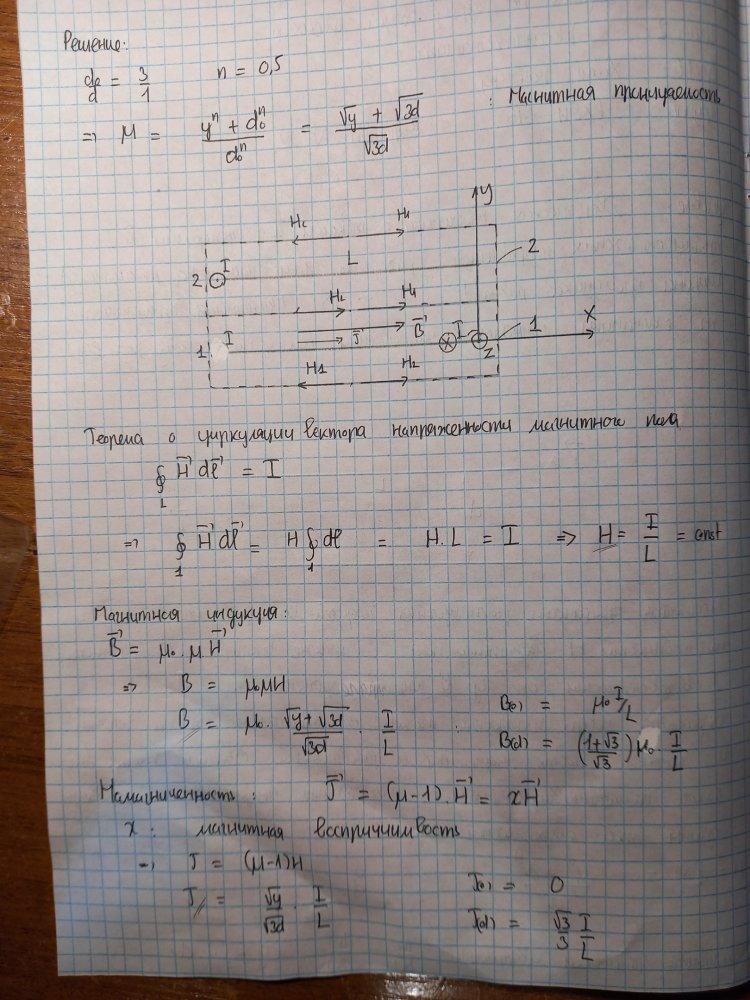 Решение:
d₀/d = 3/1 n = 0,5
=> μ = (yⁿ + d₀ⁿ)/d₀ⁿ = (√y + √3d)/√3d : Магнитная проницаемость
y
H₂ H₁
I L 2
2
H₂ H₁
I J⃗ B⃗ I 1 X
1 Z
H1 H₂
Теорема о циркуляции вектора напряженности магнитного поля
∮_L H⃗ dℓ⃗ = I
=> ∮₁ H⃗ dℓ⃗ = H ∮₁ dℓ = H.L = I => H = I/L = const
Магнитная индукция:
B⃗ = μ₀.μ H⃗
=> B = μ₀μH
B = μ₀ . (√y + √3d)/√3d . I/L : B(0) = μ₀ I/L
B(d) = ((1+√3)/√3) μ₀ . I/L
Намагниченность: J⃗ = (μ-1).H⃗ = χH⃗
χ: магнитная восприимчивость
=> J = (μ-1)H
J = √y/√3d . I/L J(0) = 0
J(d) = √3/3 I/L